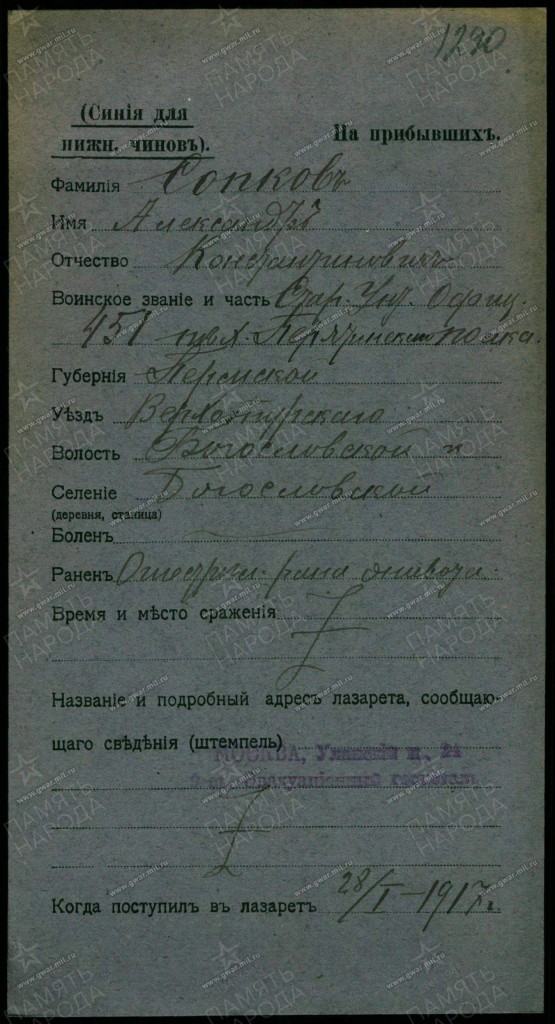 1290
(Синія для
нижн. чиновъ).
На прибывшихъ.
Фамилія Сопковъ
Имя Александръ
Отчество Константиновичъ
Воинское званіе и часть Стар. Унт. Офиц.
451 пѣх. Пирятинскаго полка.
Губернія Пермской
Уѣздъ Верхотурскаго
Волость Богословской
Селеніе Богословской
(деревня, станица)
Боленъ
Раненъ рана живота.
Время и мѣсто сраженія
Названіе и подробный адресъ лазарета, сообщаю-
щаго свѣдѣнія (штемпель)
МОСКВА, 24
Эвакуаціонный госпиталь
Когда поступилъ въ лазаретъ 28/I–1917 г.
ПАМЯТЬ НАРОДА
www.gwar.mil.ru